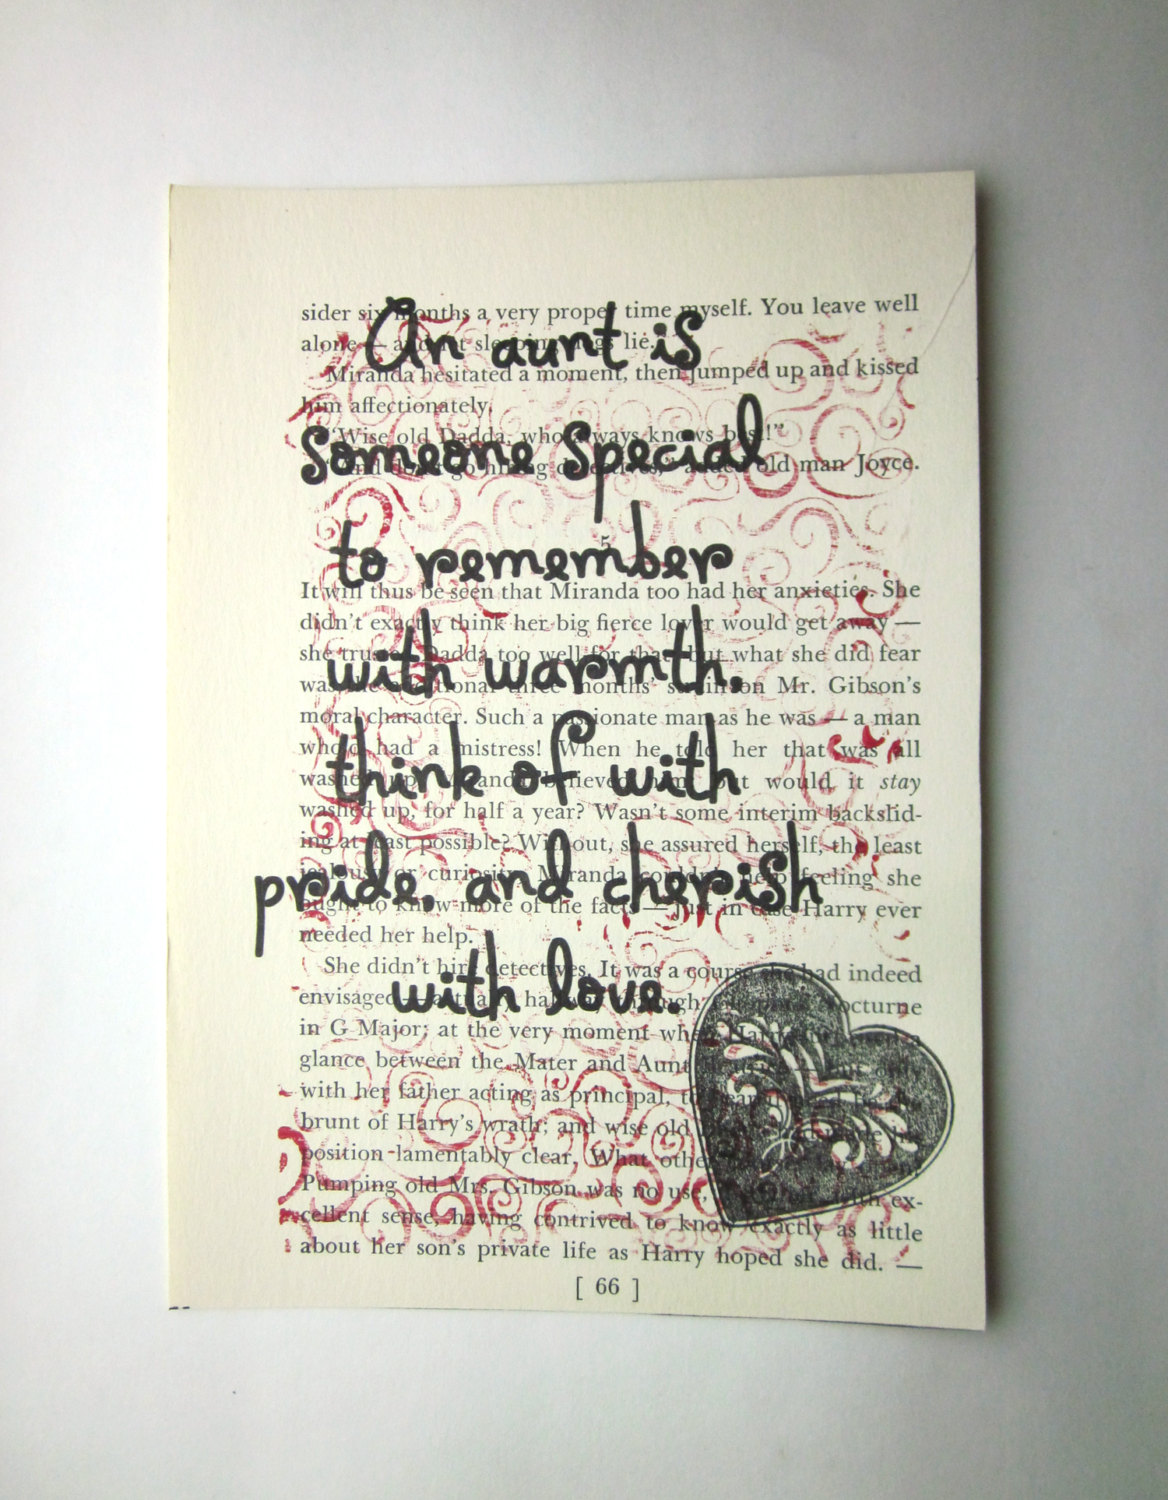 An aunt is
Someone Special
to remember
with warmth,
think of with
pride, and cherish
with love.
sider six months a very proper time myself. You leave well
alone — and let sleeping dogs lie.”
Miranda hesitated a moment, then jumped up and kissed
him affectionately.
“Wise old Dadda, who always knows best!”
“And don’t go hiring detectives,” added old man Joyce.
5
It will thus be seen that Miranda too had her anxieties. She
didn’t exactly think her big fierce lover would get away —
she trusted Dadda too well for that; but what she did fear
was the additional three months’ strain on Mr. Gibson’s
moral character. Such a passionate man as he was — a man
who’d had a mistress! When he told her that was all
washed up, Miranda believed him; but would it stay
washed up, for half a year? Wasn’t some interim backslid-
ing at least possible? Without, she assured herself, the least
jealousy or curiosity, Miranda couldn’t help feeling she
ought to know more of the facts — just in case Harry ever
needed her help.
She didn’t hire detectives. It was a course she had indeed
envisaged — actually halfway through Nocturne
in G Major; at the very moment when Harry a
glance between the Mater and Aunt — but only
with her father acting as principal, to
brunt of Harry’s wrath; and wise old
position lamentably clear. What other
Pumping old Mrs. Gibson was no use, with ex-
cellent sense, having contrived to know exactly as little
about her son’s private life as Harry hoped she did. —
[ 66 ]